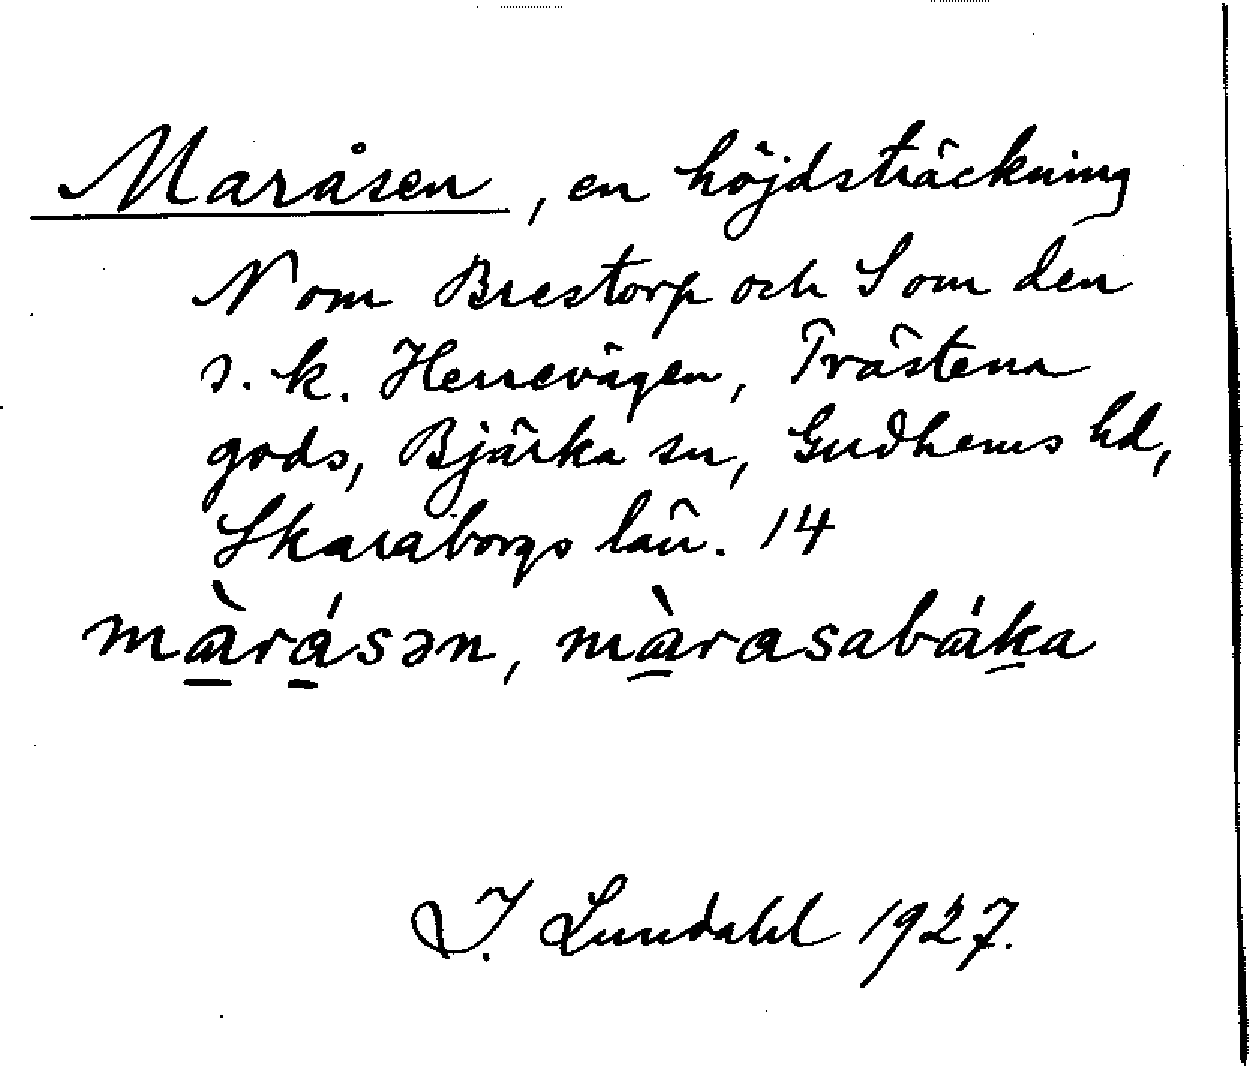 Maråsen, en höjdsträckning
N om Brestorp och S om den
s.k. Herrevägen, Trästena
gods, Bjärka sn, Gudhems hd,
Skaraborgs län. 14
màrásən, màrasabáka
I. Lundahl 1927.